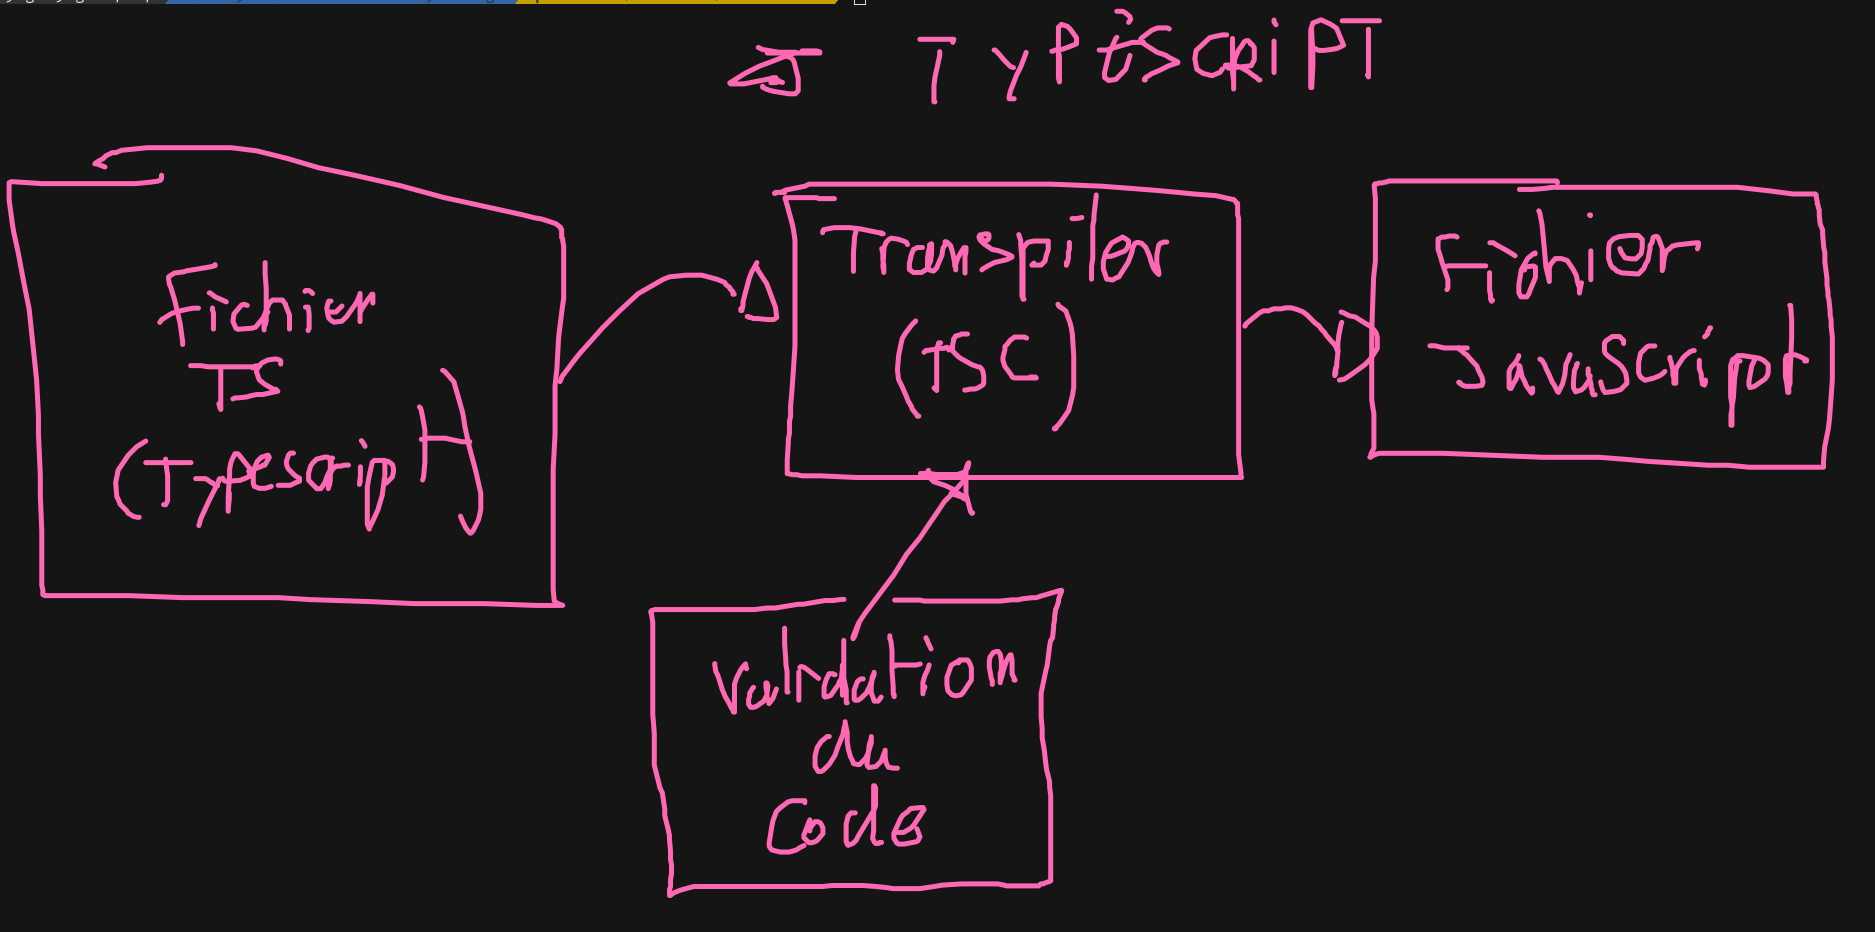 TYPESCRIPT
Fichier
TS
(Typescript)
Transpiler
(TSC)
Fichier
JavaScript
Validation
du
Code